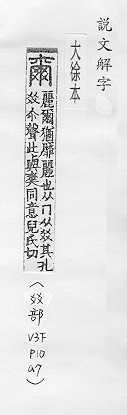 說文解字
大徐本
爾
麗爾猶靡麗也从冂从㸚其孔
㸚尒聲此與爽同意兒氏切
(㸚部
V3下
P10
a7)